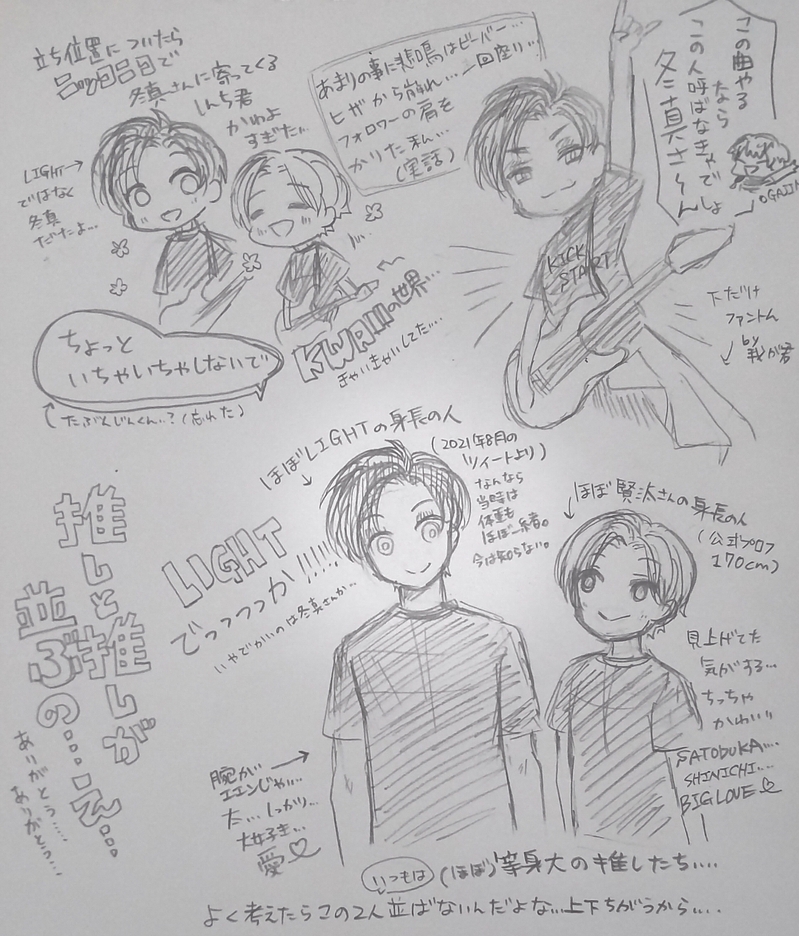 立ち位置についたら
ニッコニコで
冬真さんに寄ってくる
しんち君
かわよ
すぎた…
LIGHT→
ではなく
冬真
だたよ…
あまりの事に悲鳴はビーバー…
ヒザから崩れ…一回座り…
フォロワーの肩を
かりた私…
(実話)
この曲やる
なら
この人呼ばなきゃでしょ
冬真さぁん
OGAJIN
KICK
START
下だけ
ファントム
by
我が君
ちょっと
いちゃいちゃしないで
(たぶんじんくん…?(忘れた)
KWAIIIの世界…
きゃいきゃいしてた…
ほぼLIGHTの身長の人
(2021年8月の
ツイートより)
なんなら
当時は
体重も
ほぼ一緒。
今は知らない。
LIGHT
でっっっっか!!!!!
いやでかいのは冬真さんか…
ほぼ賢汰さんの身長の人
(公式プロフ
170cm)
見上げてた
気がする…
ちっちゃ
かわいい
SATODUKA…
SHINICHI…
BIG LOVE♡
推しと推しが
並ぶの……え…
ありがとう……
ありがとう…
腕が→
エエンじゃ…
た…しっかり…
大好き…
愛♡
いつもは
(ほぼ)等身大の推したち…
よく考えたらこの2人並ばないんだよな…上下ちがうから…